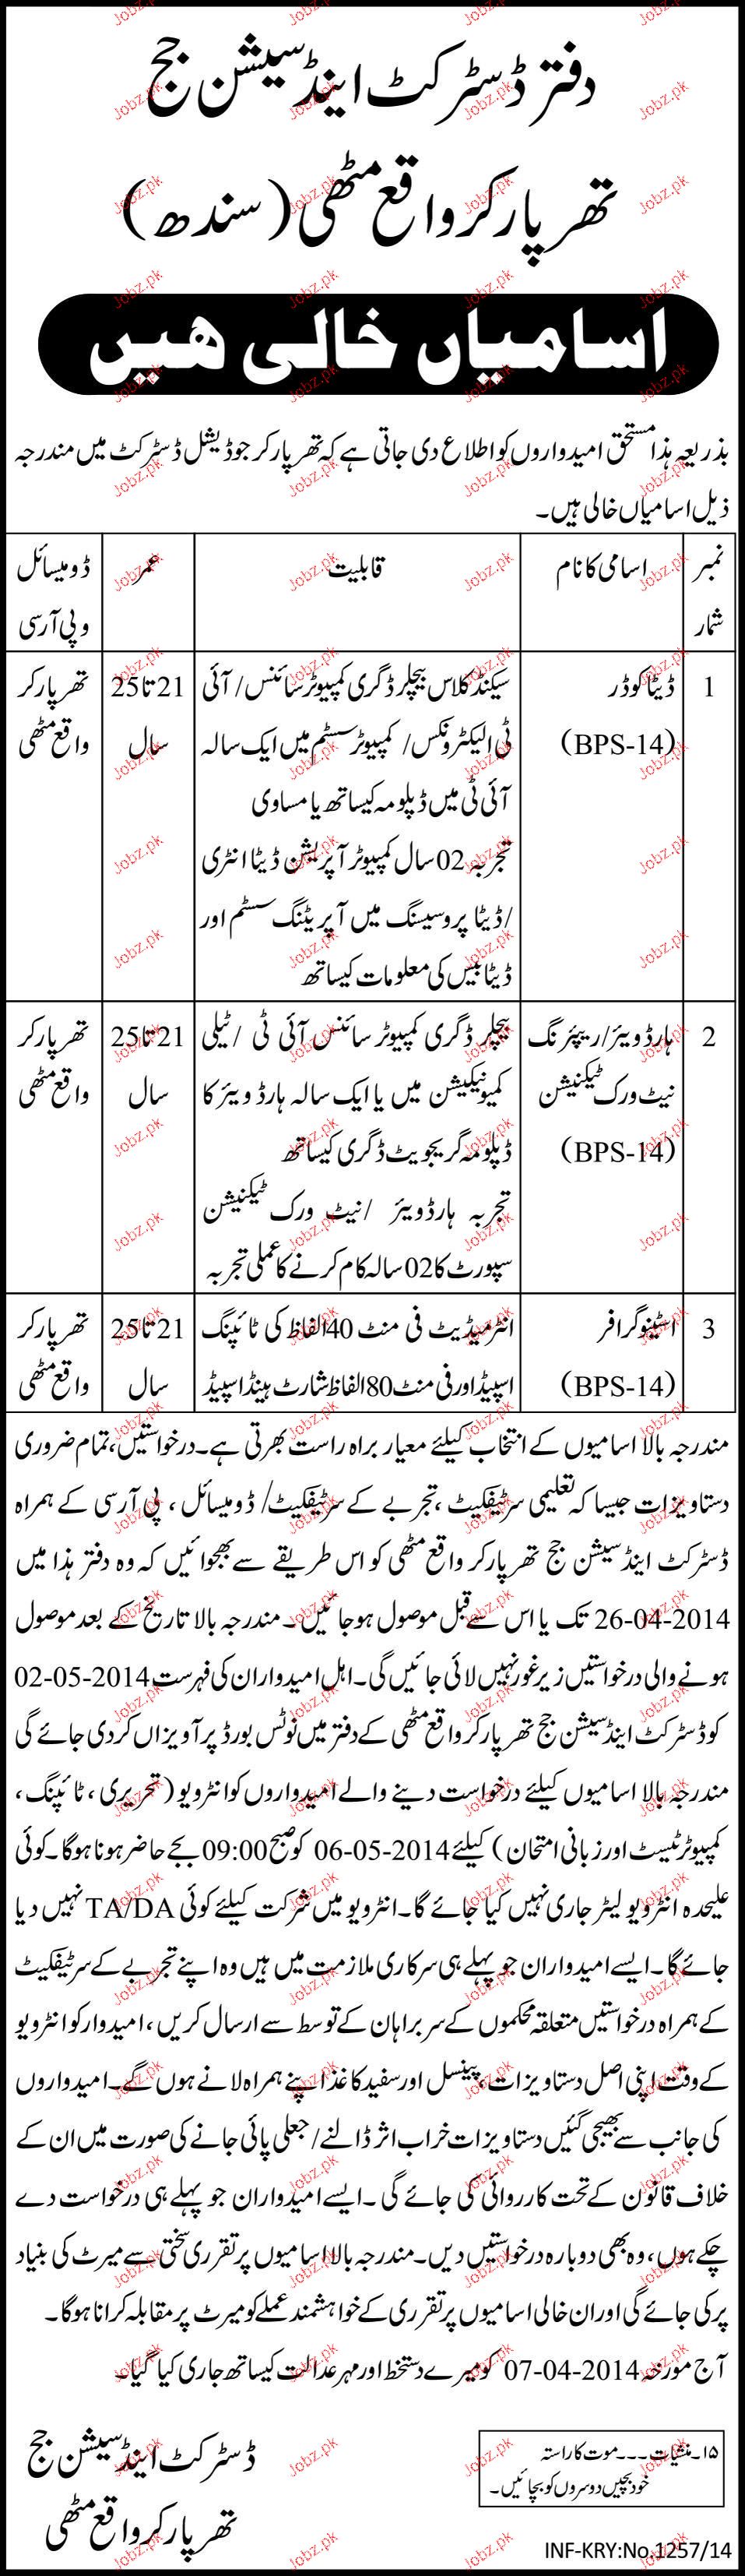 دفتر ڈسٹرکٹ اینڈ سیشن جج
تھرپارکر واقع مٹھی (سندھ)
اسامیاں خالی ھیں
بذریعہ ہذا مستحق امیدواروں کو اطلاع دی جاتی ہے کہ تھرپارکر جوڈیشل ڈسٹرکٹ میں مندرجہ
ذیل اسامیاں خالی ہیں۔
نمبر شمار	اسامی کا نام	قابلیت	عمر	ڈومیسائل و پی آر سی
1	ڈیٹا کوڈر	سیکنڈ کلاس بیچلر ڈگری کمپیوٹر سائنس / آئی	21 تا 25	تھرپارکر
(BPS-14)	ٹی الیکٹرونکس / کمپیوٹر سسٹم میں ایک سالہ	سال	واقع مٹھی
آئی ٹی میں ڈپلومہ کیساتھ یا مساوی
تجربہ 02 سال کمپیوٹر آپریشن ڈیٹا انٹری
/ ڈیٹا پروسیسنگ میں آپریٹنگ سسٹم اور
ڈیٹا بیس کی معلومات کیساتھ
2	ہارڈویئر / ریپئرنگ	بیچلر ڈگری کمپیوٹر سائنس آئی ٹی / ٹیلی	21 تا 25	تھرپارکر
نیٹ ورک ٹیکنیشن	کمیونیکیشن میں یا ایک سالہ ہارڈویئر کا	سال	واقع مٹھی
(BPS-14)	ڈپلومہ گریجویٹ ڈگری کیساتھ
تجربہ ہارڈویئر / نیٹ ورک ٹیکنیشن
سپورٹ کا 02 سالہ کام کرنے کا عملی تجربہ
3	اسٹینوگرافر	انٹرمیڈیٹ فی منٹ 40 الفاظ کی ٹائپنگ	21 تا 25	تھرپارکر
(BPS-14)	اسپیڈ اور فی منٹ 80 الفاظ شارٹ ہینڈ اسپیڈ	سال	واقع مٹھی
مندرجہ بالا اسامیوں کے انتخاب کیلئے معیار براہ راست بھرتی ہے۔ درخواستیں، تمام ضروری
دستاویزات جیسا کہ تعلیمی سرٹیفکیٹ، تجربے کے سرٹیفکیٹ / ڈومیسائل، پی آر سی کے ہمراہ
ڈسٹرکٹ اینڈ سیشن جج تھرپارکر واقع مٹھی کو اس طریقے سے بھجوائیں کہ وہ دفتر ہذا میں
26-04-2014 تک یا اس سے قبل موصول ہو جائیں۔ مندرجہ بالا تاریخ کے بعد موصول
ہونے والی درخواستیں زیر غور نہیں لائی جائیں گی۔ اہل امیدواران کی فہرست 02-05-2014
کو ڈسٹرکٹ اینڈ سیشن جج تھرپارکر واقع مٹھی کے دفتر میں نوٹس بورڈ پر آویزاں کر دی جائے گی
مندرجہ بالا اسامیوں کیلئے درخواست دینے والے امیدواروں کو انٹرویو (تحریری، ٹائپنگ،
کمپیوٹر ٹیسٹ اور زبانی امتحان) کیلئے 06-05-2014 کو صبح 09:00 بجے حاضر ہونا ہوگا۔ کوئی
علیحدہ انٹرویو لیٹر جاری نہیں کیا جائے گا۔ انٹرویو میں شرکت کیلئے کوئی TA/DA نہیں دیا
جائے گا۔ ایسے امیدواران جو پہلے ہی سرکاری ملازمت میں ہیں وہ اپنے تجربے کے سرٹیفکیٹ
کے ہمراہ درخواستیں متعلقہ محکموں کے سربراہان کے توسط سے ارسال کریں، امیدوار کو انٹرویو
کے وقت اپنی اصل دستاویزات، پینسل اور سفید کاغذ اپنے ہمراہ لانے ہوں گے۔ امیدواروں
کی جانب سے بھیجی گئیں دستاویزات خراب اثر ڈالنے / جعلی پائی جانے کی صورت میں ان کے
خلاف قانون کے تحت کارروائی کی جائے گی۔ ایسے امیدواران جو پہلے ہی درخواست دے
چکے ہوں، وہ بھی دوبارہ درخواستیں دیں۔ مندرجہ بالا اسامیوں پر تقرری سختی سے میرٹ کی بنیاد
پر کی جائے گی اور ان خالی اسامیوں پر تقرری کے خواہشمند عملے کو میرٹ پر مقابلہ کرانا ہوگا۔
آج مورخہ 07-04-2014 کو میرے دستخط اور مہر عدالت کیساتھ جاری کیا گیا۔
ڈسٹرکٹ اینڈ سیشن جج
تھرپارکر واقع مٹھی
۱۵۔ منشیات۔۔۔موت کا راستہ
خود بچیں دوسروں کو بچائیں۔
INF-KRY:No.1257/14
Jobz.pk